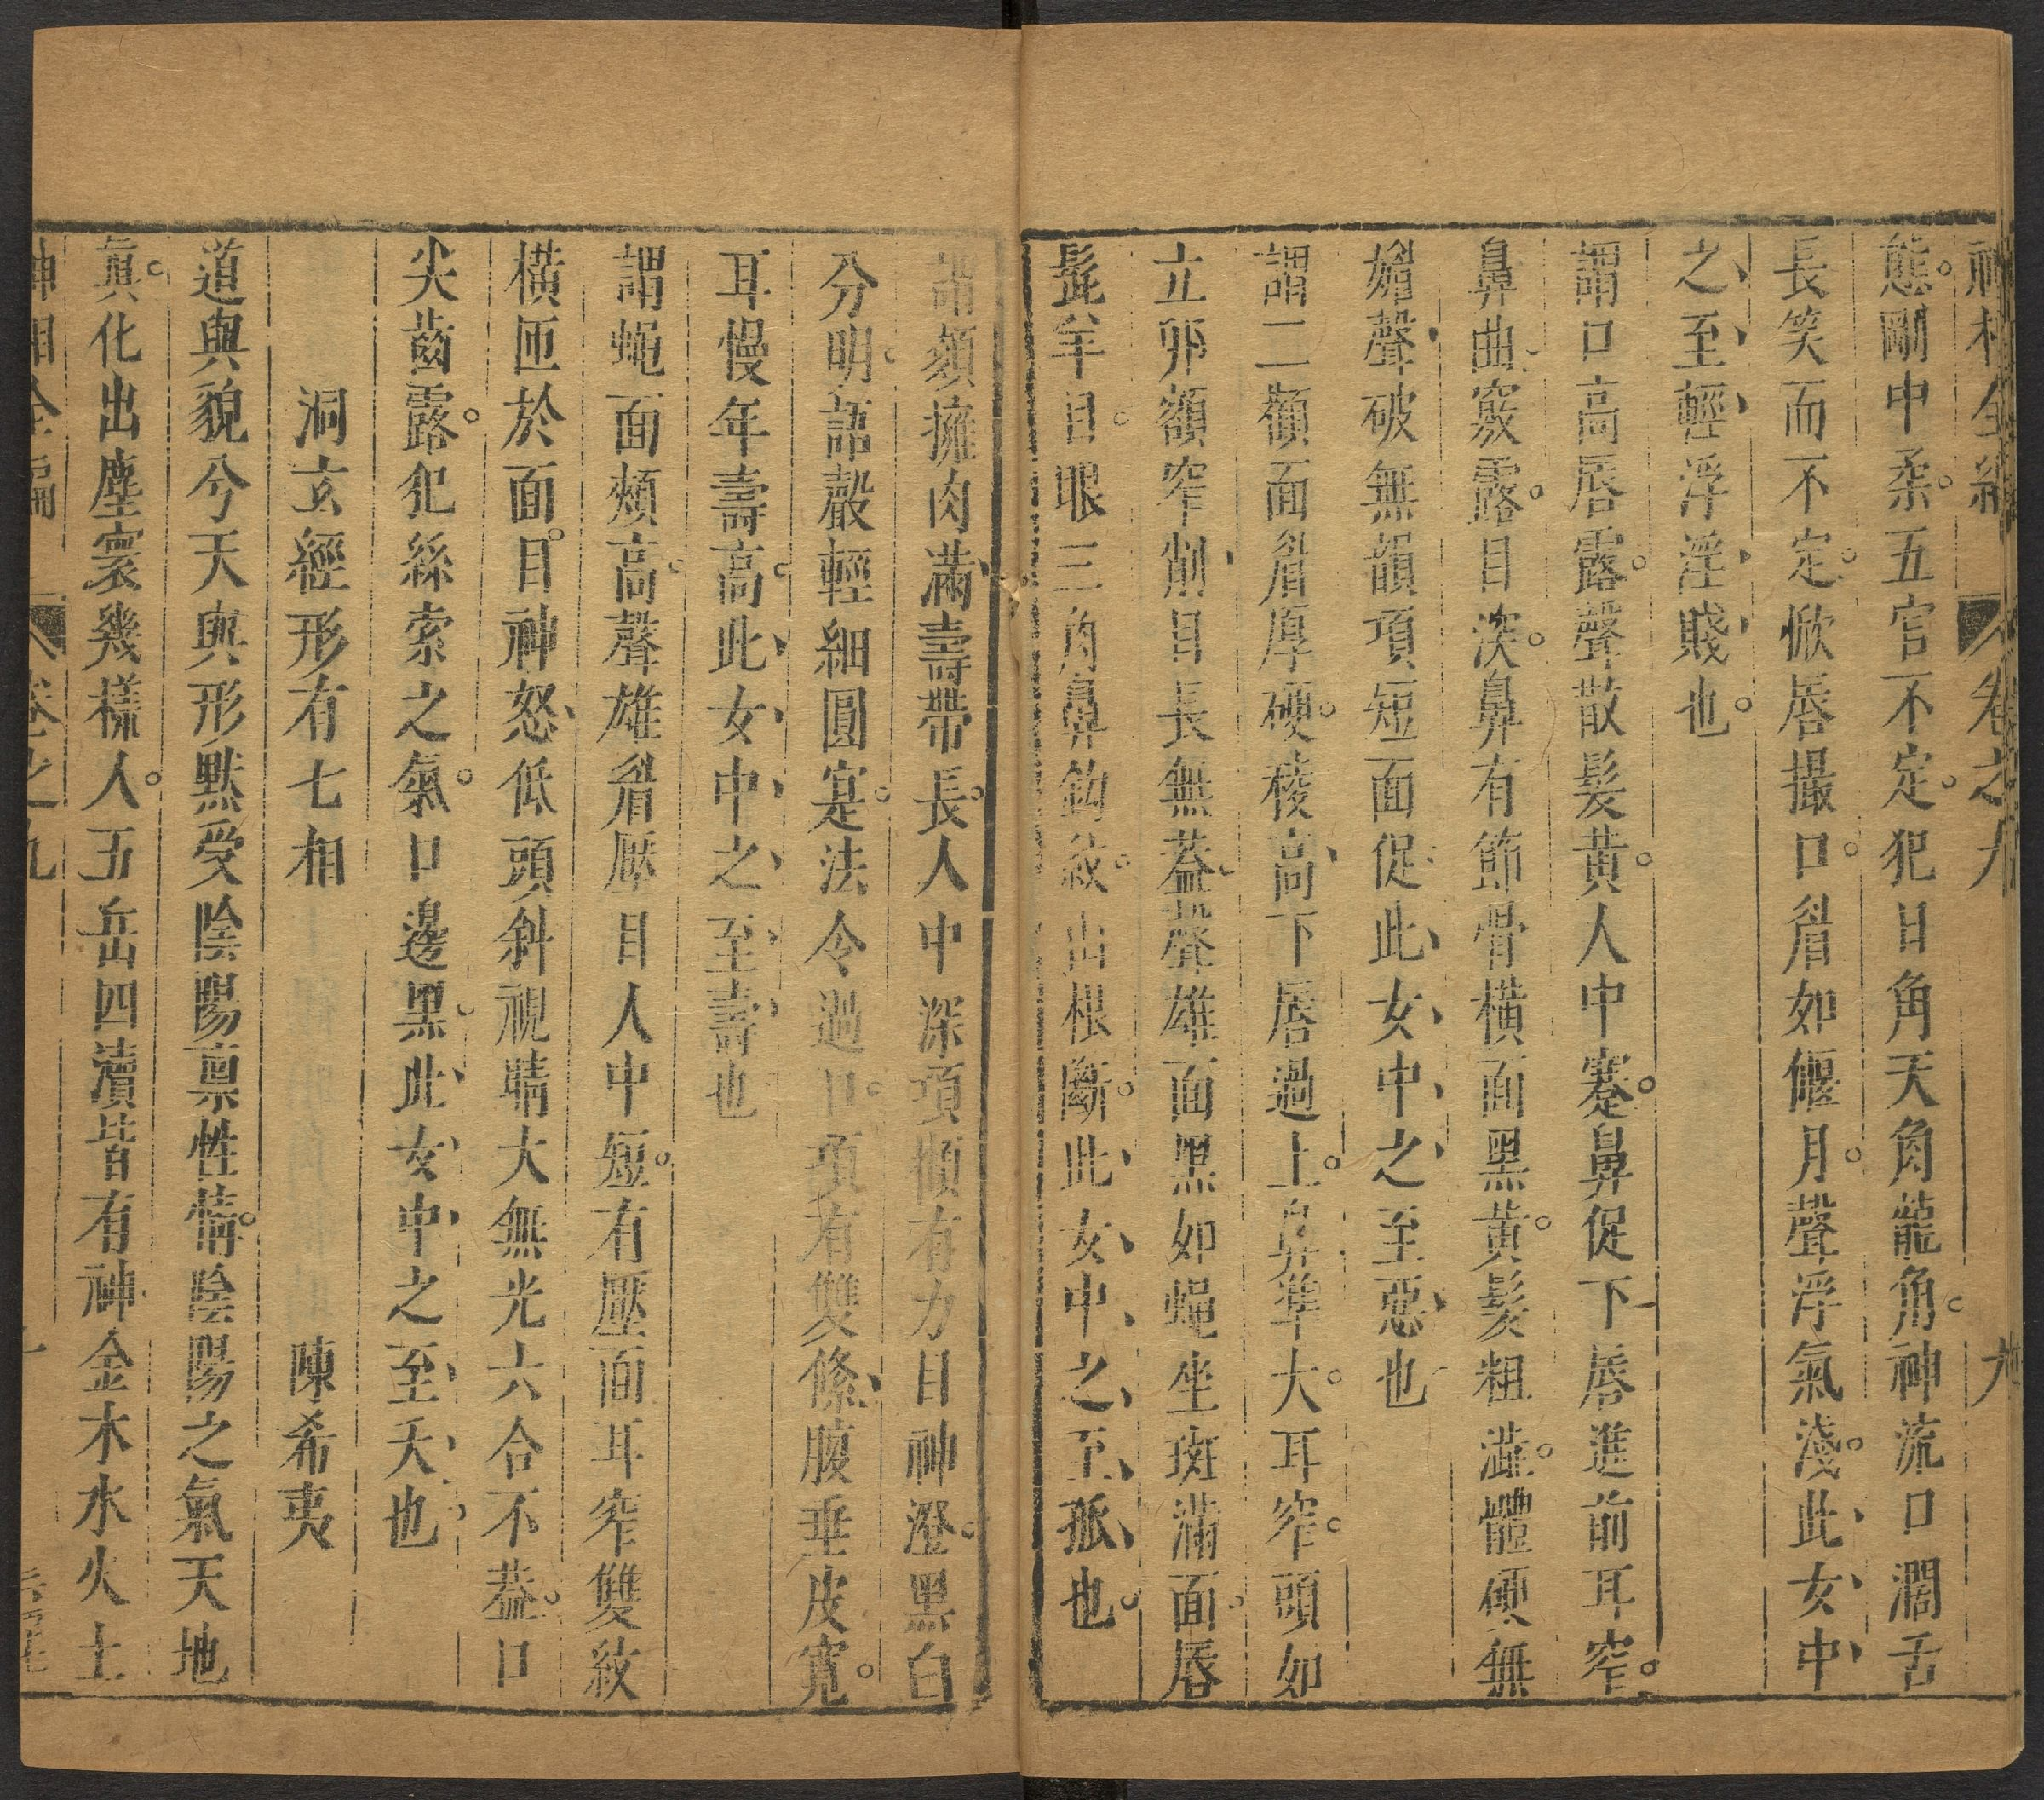 神相全編 卷之九 九
態剛中柔五官不定犯日角天角龍角神流口濶舌
長笑而不定掀唇撮口眉如偃月聲浮氣淺此女中
之至輕浮淫賤也
謂口高唇露聲散髮黃人中蹇鼻促下唇進前耳窄
鼻曲竅露目深鼻有節骨橫面黑黃髮粗澁體硬無
媚聲破無韻項短面促此女中之至惡也
謂二顴面眉厚硬稜高下唇過上鼻準大耳窄頭如
立卵額窄削目長無葢聲雄面黑如蠅坐斑滿面唇
髭羊目眼三角鼻鈎紋出根斷此女中之至孤也
謂頦擁肉滿壽帶長人中深項傾有力目神澄黑白
分明語聲輕細圓寔法令過口項有雙絛腹垂皮寬
耳慢年壽高此女中之至壽也
謂蠅面頰高聲雄眉壓目人中短有壓面耳窄雙紋
橫匝於面目神怒低頭斜視睛大無光六合不葢口
尖齒露犯絲索之氣口邊黑此女中之至夭也
洞玄經形有七相 陳希夷
道與貌兮天與形默受陰陽禀性情陰陽之氣天地
眞化出塵寰幾樣人五岳四瀆皆有神金木水火土
神相全編 卷之九